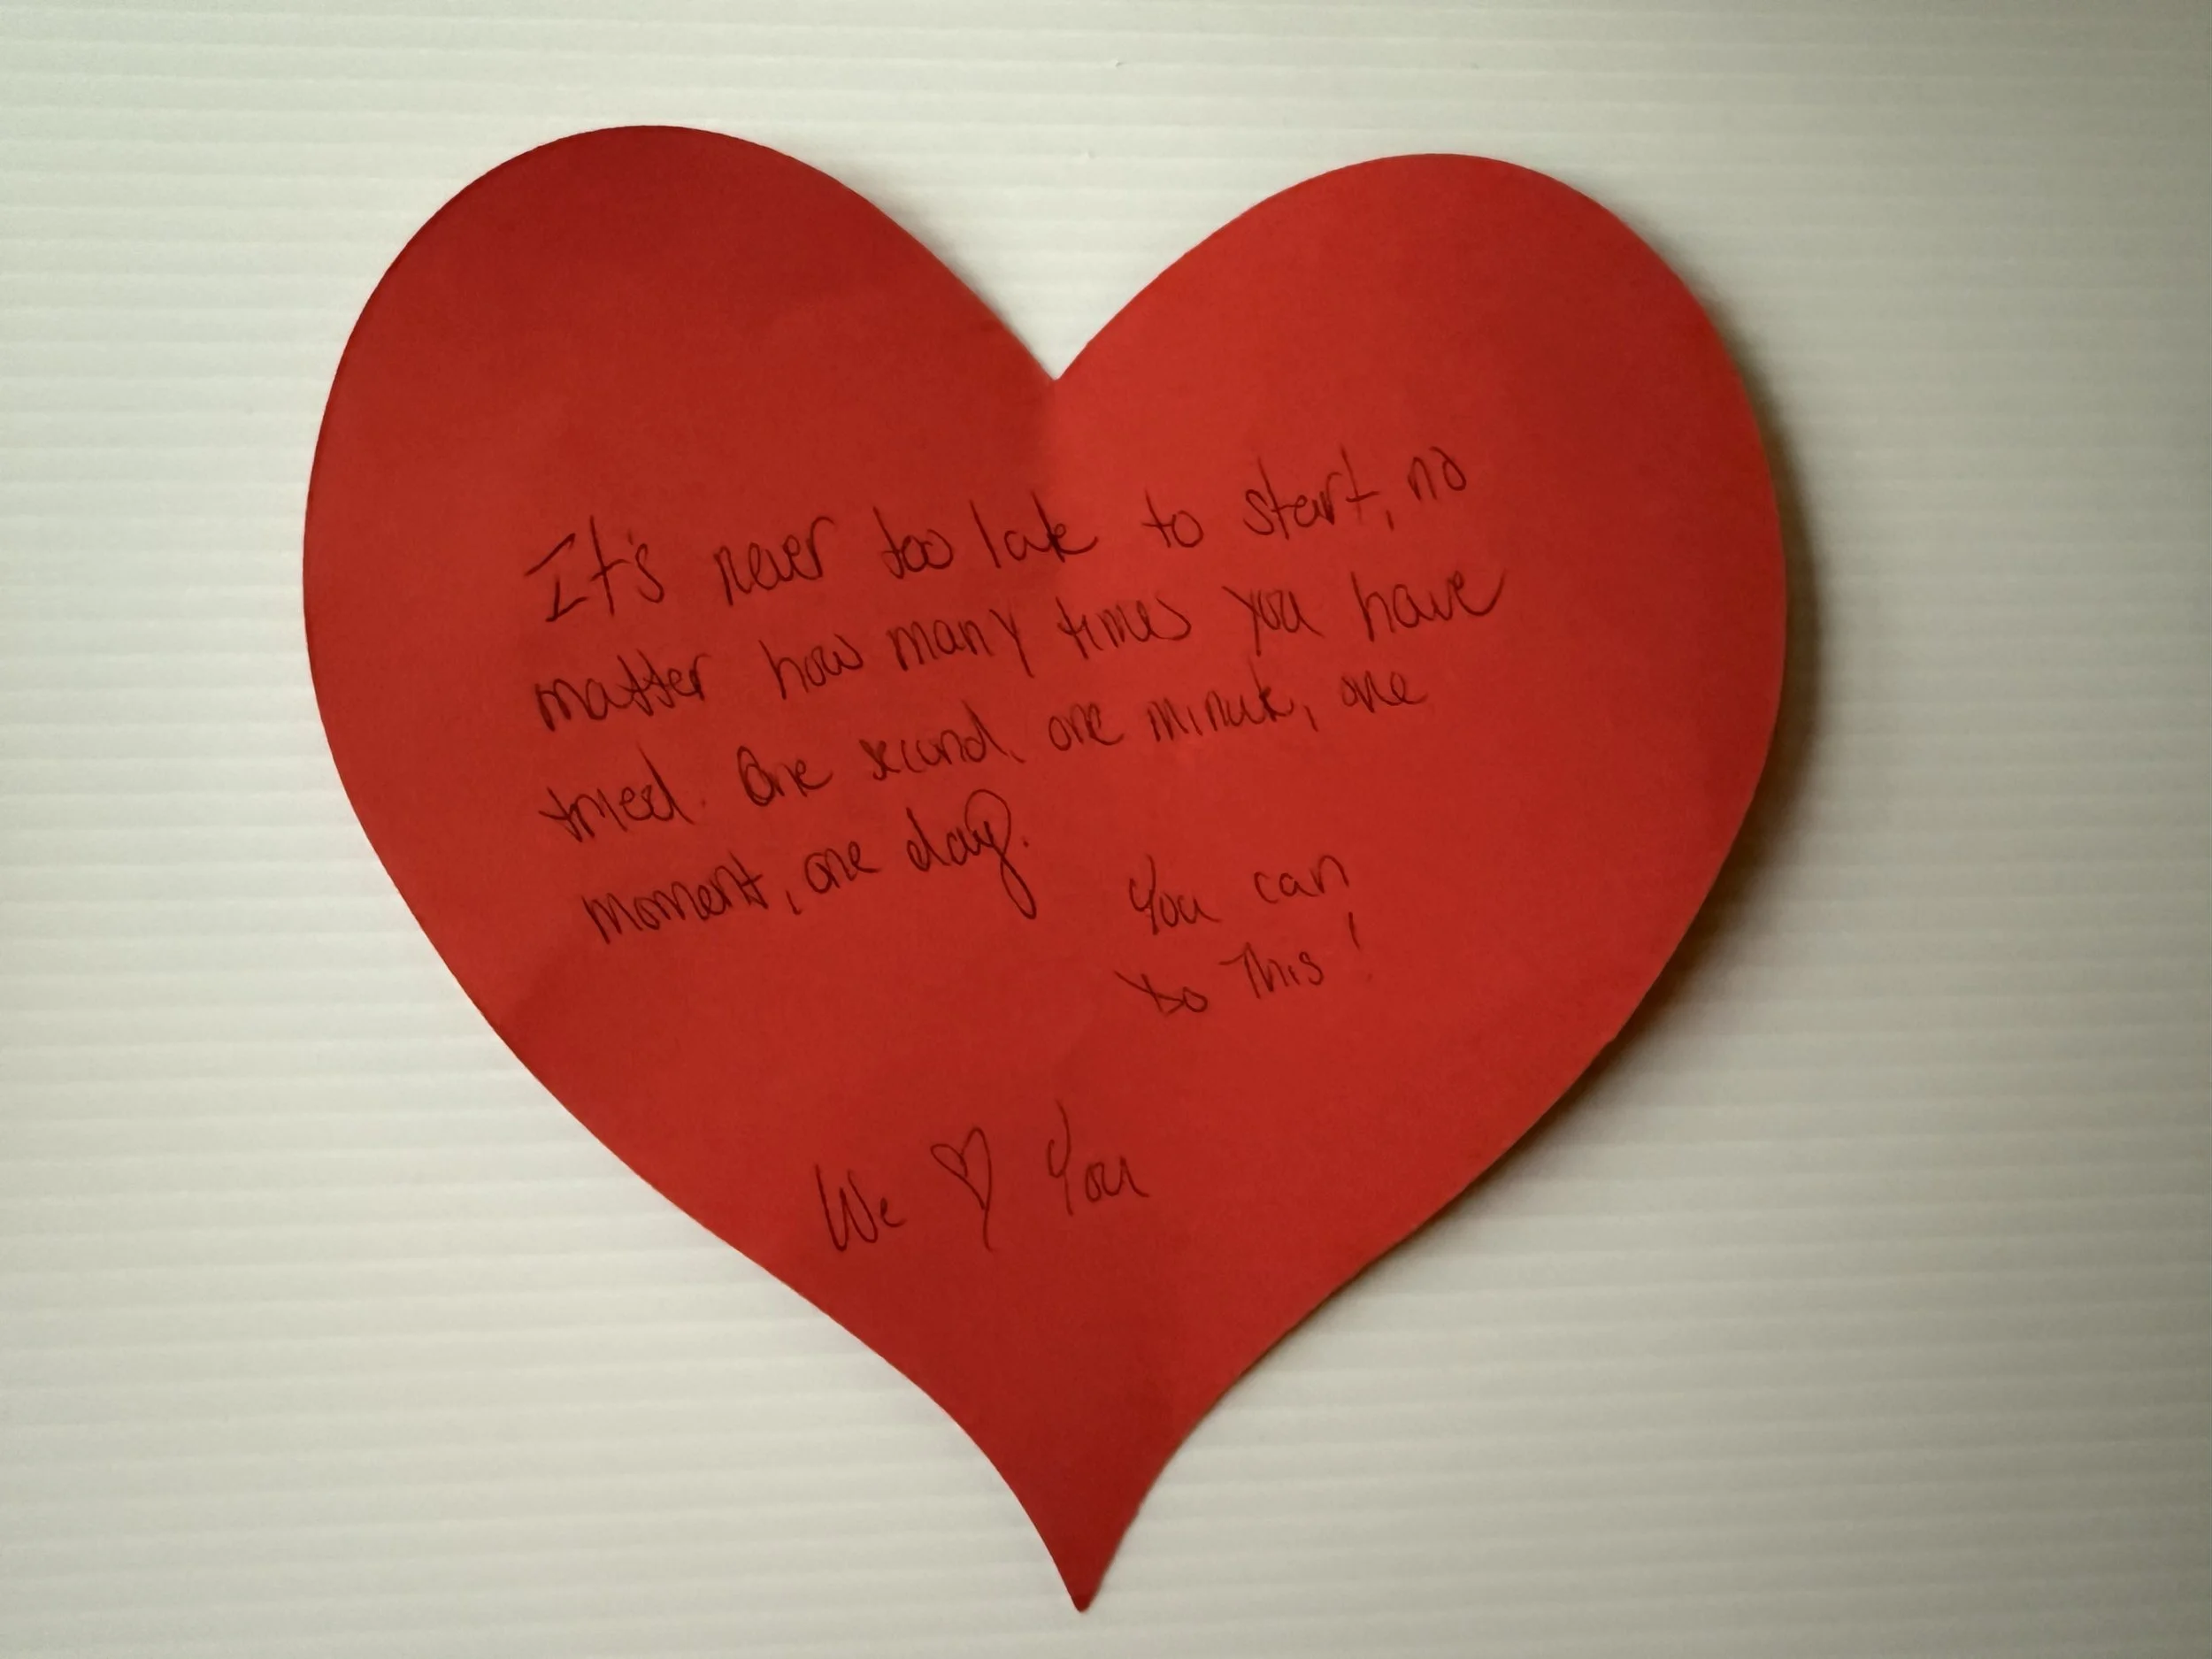 It's never too late to start, no
matter how many times you have
tried. One second, one minute, one
moment, one day.
You can
do This!
We ♡ You